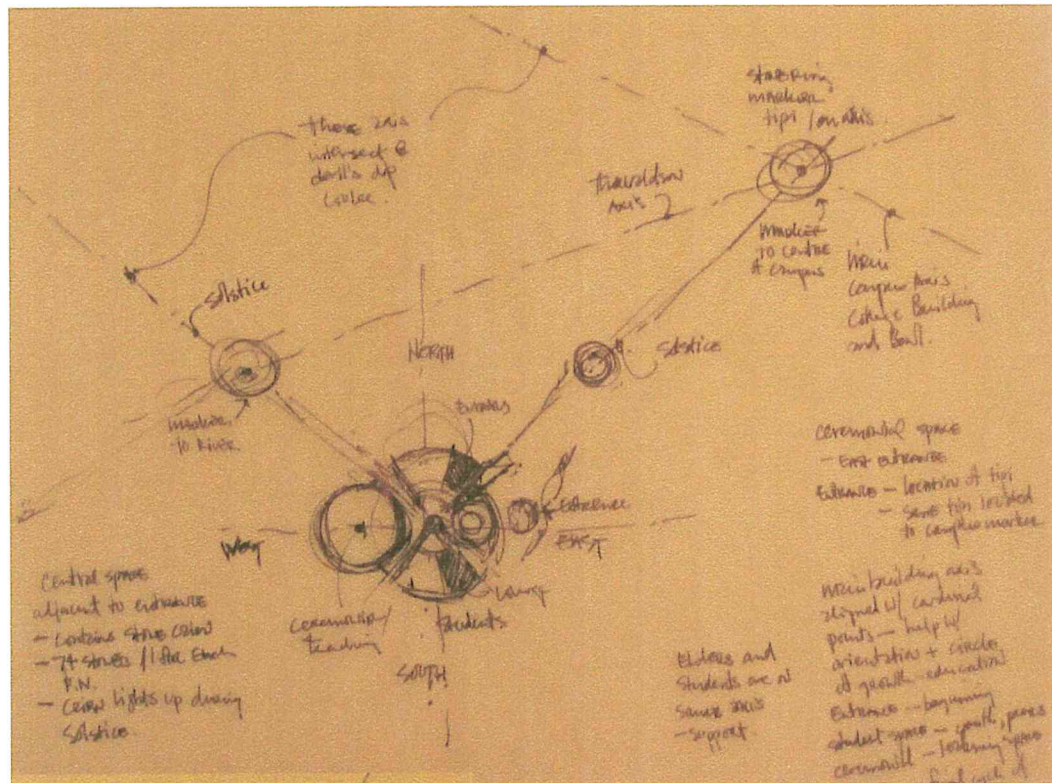 these axis
intersect @
devil's dip
coulee.
starring
marker
tipi / on axis.
traveldion
axis
marker
to centre
of campus
main
campus axis
College Building
and Bowl.
solstice
solstice
NORTH
marker
to River.
Elders
Entrance
EAST
West
ceremony/
teaching
students
Lounge
SOUTH
central space
adjacent to entrance
- contains stone cairn
- 74 stones / 1 for Each
F.N.
- cairn lights up during
Solstice.
ceremonial space
- EAST ENTRANCE
Entrance - location of tipi
- same tipi located
to campus marker
Elders and
students are on
same axis
- support
main building axis
aligned w/ cardinal
points - help w/
orientation + circle
of growth - education
Entrance - beginning
student space - youth, peers
ceremonial - learning space